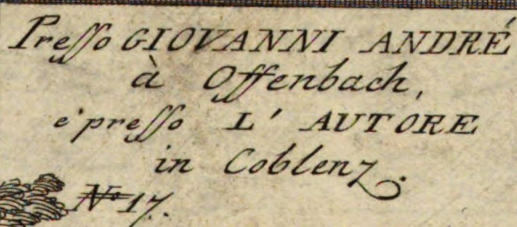 Preſſo GIOVANNI ANDRÉ
à Offenbach,
e preſſo L' AUTORE
in Coblenz.
No 17.